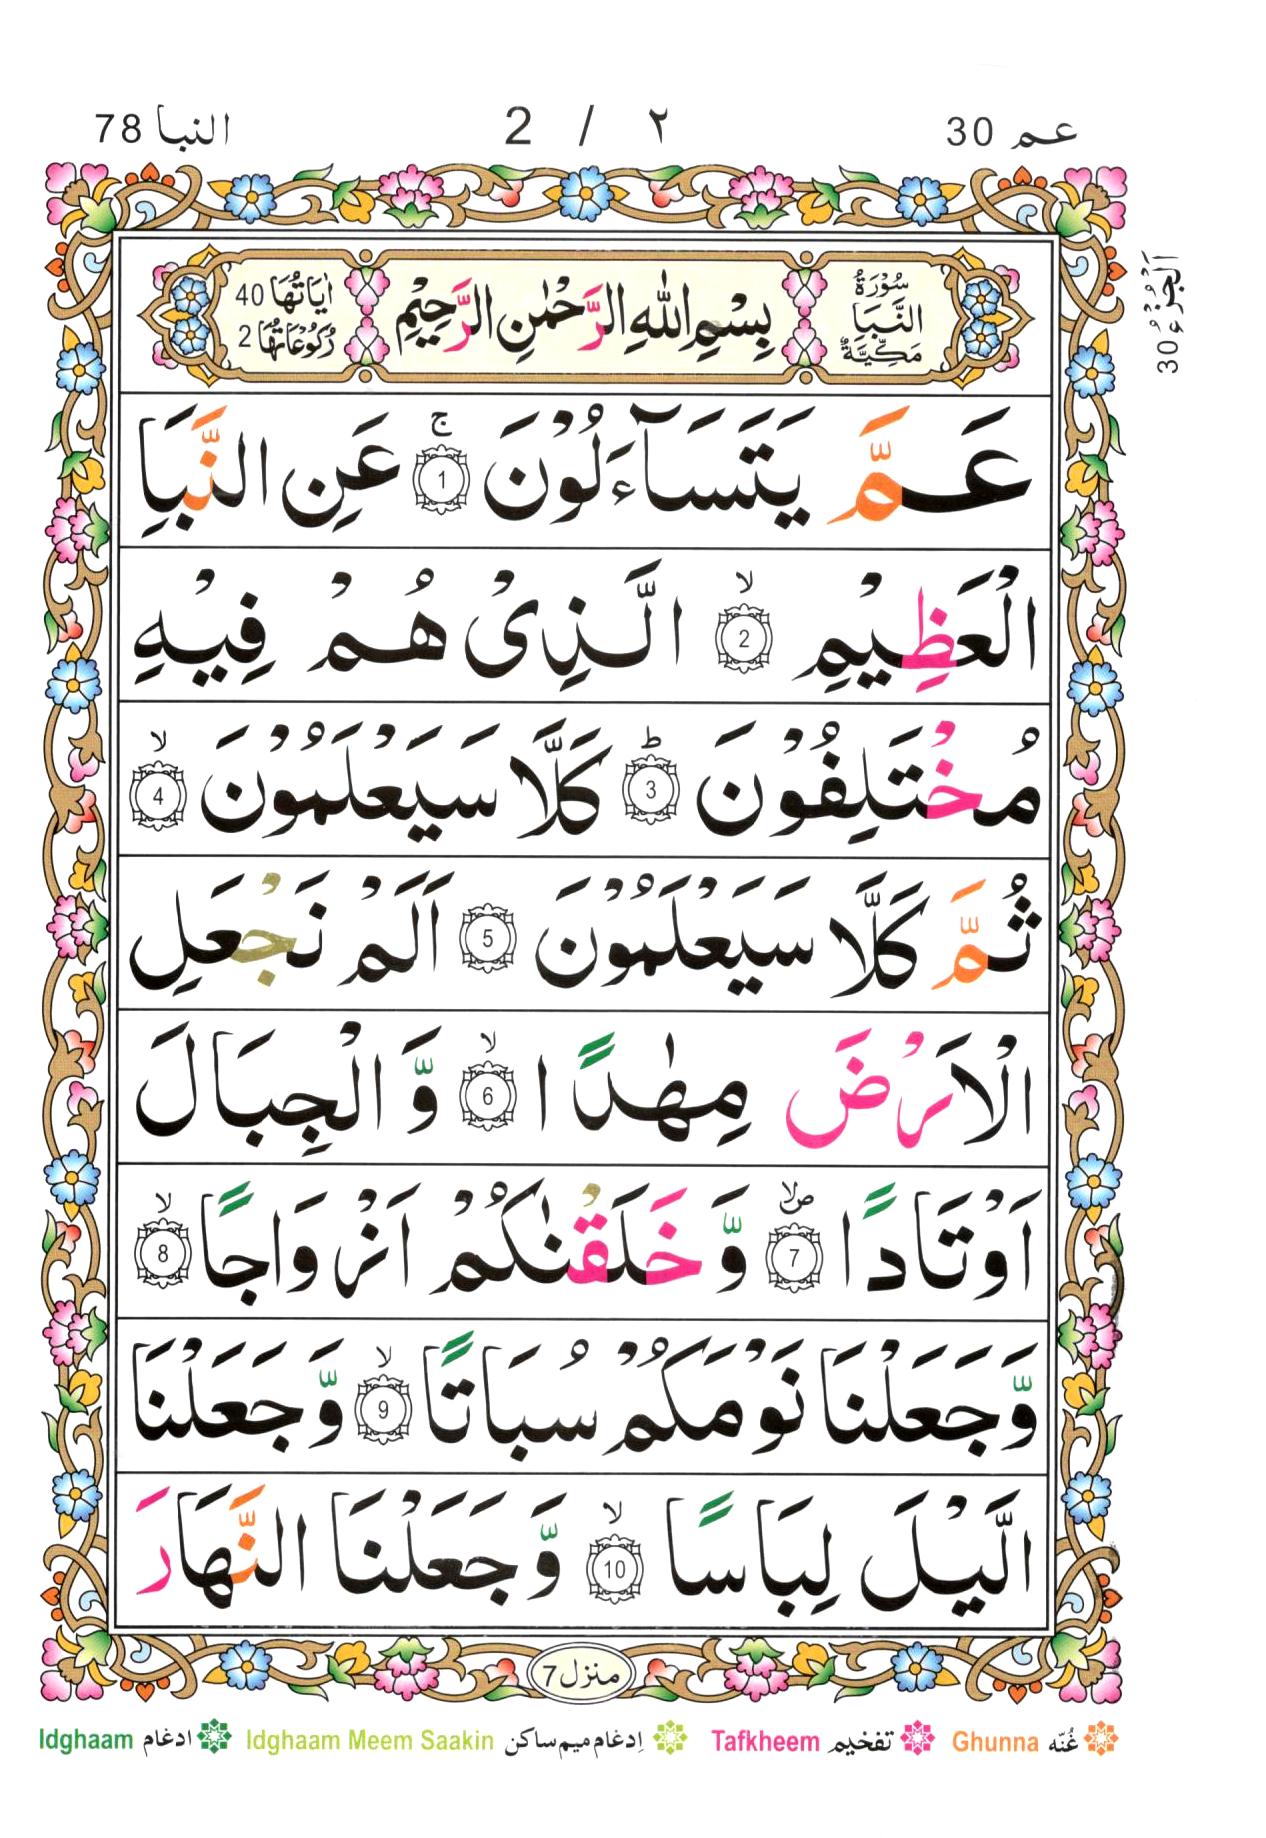 عم 30
2 / ٢
النبا 78
اَلْجُزْءُ 30
سُوْرَةُ النَّبَاِ مَكِّيَّةٌ
بِسْمِ اللّٰهِ الرَّحْمٰنِ الرَّحِيْمِ
اٰيَاتُهَا 40
رُكُوْعَاتُهَا 2
عَمَّ يَتَسَآءَلُوْنَ ۚ 1 عَنِ النَّبَاِ
الْعَظِيْمِ ۙ 2 الَّذِىْ هُمْ فِيْهِ
مُخْتَلِفُوْنَ ؕ 3 كَلَّا سَيَعْلَمُوْنَ ۙ 4
ثُمَّ كَلَّا سَيَعْلَمُوْنَ 5 اَلَمْ نَجْعَلِ
الْاَرْضَ مِهٰدًا ۙ 6 وَّالْجِبَالَ
اَوْتَادًا ۙ 7 وَّخَلَقْنٰكُمْ اَزْوَاجًا ۙ 8
وَّجَعَلْنَا نَوْمَكُمْ سُبَاتًا ۙ 9 وَّجَعَلْنَا
الَّيْلَ لِبَاسًا ۙ 10 وَّجَعَلْنَا النَّهَارَ
منزل 7
غُنّه Ghunna تفخيم Tafkheem إدغام ميم ساكن Idghaam Meem Saakin ادغام Idghaam